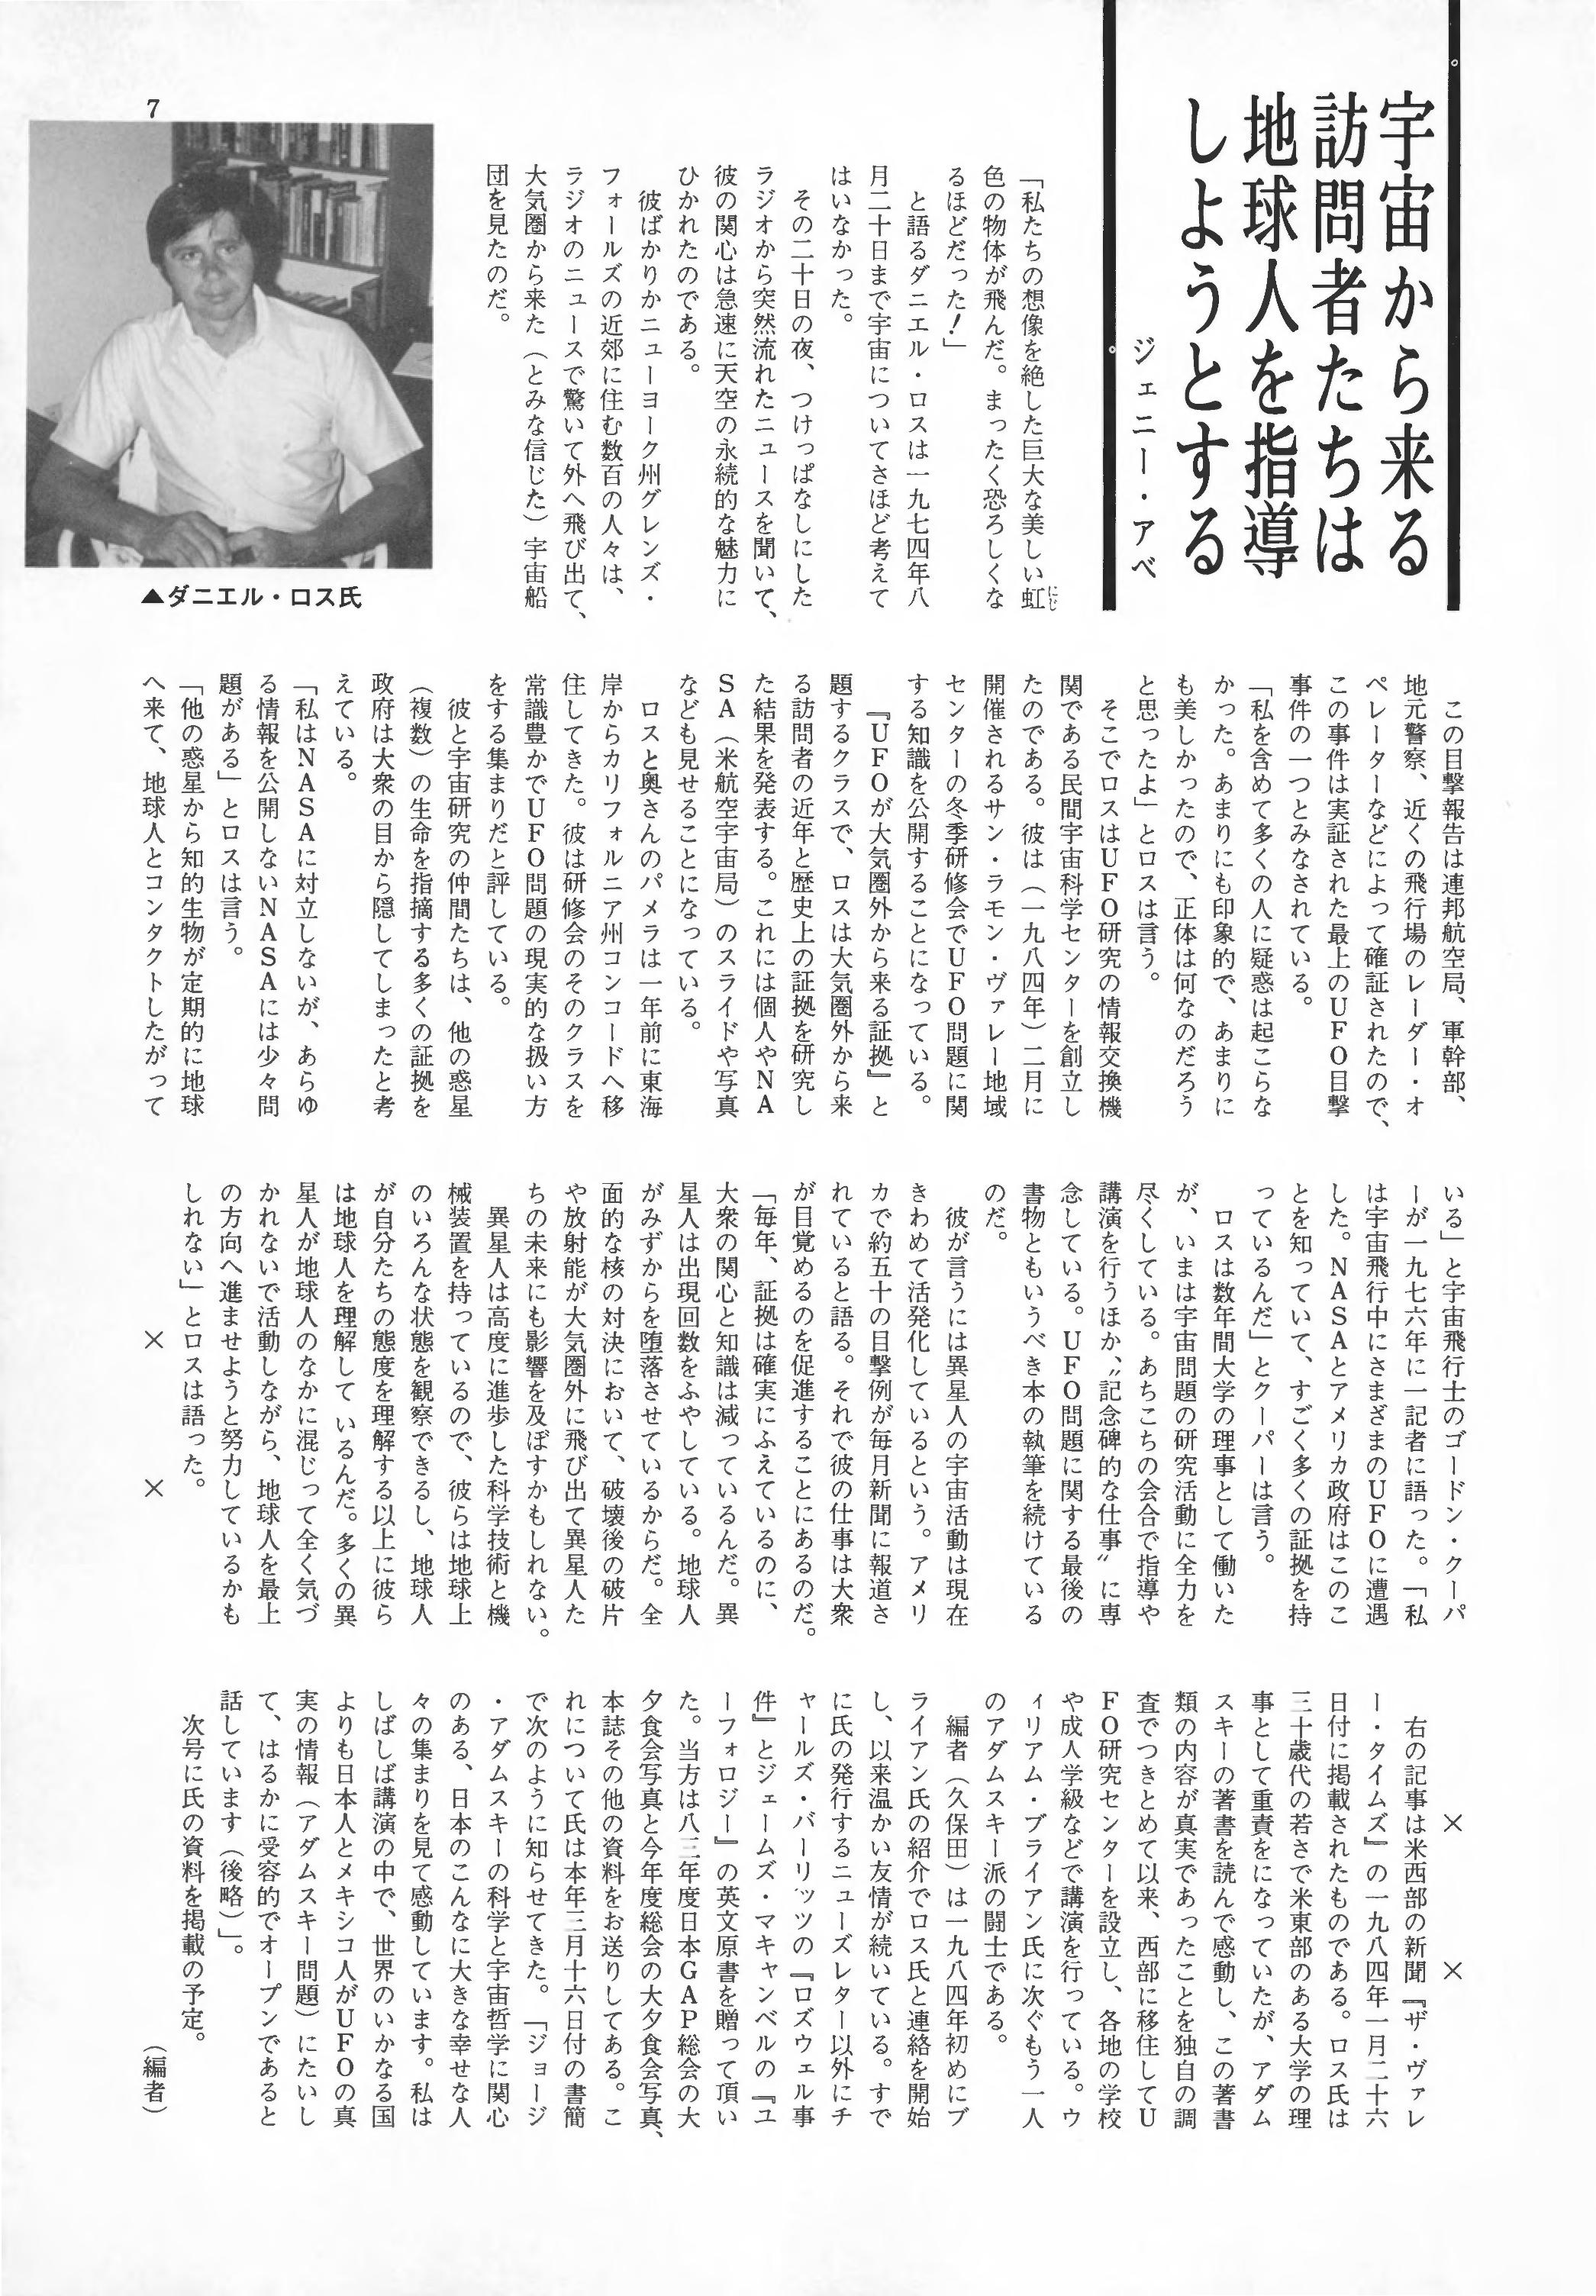 宇宙から来る
訪問者たちは
地球人を指導
しようとする
ジェニー・アベ
「私たちの想像を絶した巨大な美しい虹
にじ
色の物体が飛んだ。まったく恐ろしくな
るほどだった！」
と語るダニエル・ロスは一九七四年八
月二十日まで宇宙についてさほど考えて
はいなかった。
その二十日の夜、つけっぱなしにした
ラジオから突然流れたニュースを聞いて、
彼の関心は急速に天空の永続的な魅力に
ひかれたのである。
彼ばかりかニューヨーク州グレンズ・
フォールズの近郊に住む数百の人々は、
ラジオのニュースで驚いて外へ飛び出て、
大気圏から来た（とみな信じた）宇宙船
団を見たのだ。
▲ダニエル・ロス氏
7
この目撃報告は連邦航空局、軍幹部、
地元警察、近くの飛行場のレーダー・オ
ペレーターなどによって確証されたので、
この事件は実証された最上のUFO目撃
事件の一つとみなされている。
「私を含めて多くの人に疑惑は起こらな
かった。あまりにも印象的で、あまりに
も美しかったので、正体は何なのだろう
と思ったよ」とロスは言う。
そこでロスはUFO研究の情報交換機
関である民間宇宙科学センターを創立し
たのである。彼は（一九八四年）二月に
開催されるサン・ラモン・ヴァレー地域
センターの冬季研修会でUFO問題に関
する知識を公開することになっている。
『UFOが大気圏外から来る証拠』と
題するクラスで、ロスは大気圏外から来
る訪問者の近年と歴史上の証拠を研究し
た結果を発表する。これには個人やNA
SA（米航空宇宙局）のスライドや写真
なども見せることになっている。
ロスと奥さんのパメラは一年前に東海
岸からカリフォルニア州コンコードへ移
住してきた。彼は研修会のそのクラスを
常識豊かでUFO問題の現実的な扱い方
をする集まりだと評している。
彼と宇宙研究の仲間たちは、他の惑星
（複数）の生命を指摘する多くの証拠を
政府は大衆の目から隠してしまったと考
えている。
「私はNASAに対立しないが、あらゆ
る情報を公開しないNASAには少々問
題がある」とロスは言う。
「他の惑星から知的生物が定期的に地球
へ来て、地球人とコンタクトしたがって
いる」と宇宙飛行士のゴードン・クーパ
ーが一九七六年に一記者に語った。「私
は宇宙飛行中にさまざまのUFOに遭遇
した。NASAとアメリカ政府はこのこ
とを知っていて、すごく多くの証拠を持
っているんだ」とクーパーは言う。
ロスは数年間大学の理事として働いた
が、いまは宇宙問題の研究活動に全力を
尽くしている。あちこちの会合で指導や
講演を行うほか、〝記念碑的な仕事〟に専
念している。UFO問題に関する最後の
書物ともいうべき本の執筆を続けている
のだ。
彼が言うには異星人の宇宙活動は現在
きわめて活発化しているという。アメリ
カで約五十の目撃例が毎月新聞に報道さ
れていると語る。それで彼の仕事は大衆
が目覚めるのを促進することにあるのだ。
「毎年、証拠は確実にふえているのに、
大衆の関心と知識は減っているんだ。異
星人は出現回数をふやしている。地球人
がみずからを堕落させているからだ。全
面的な核の対決において、破壊後の破片
や放射能が大気圏外に飛び出て異星人た
ちの未来にも影響を及ぼすかもしれない。
異星人は高度に進歩した科学技術と機
械装置を持っているので、彼らは地球上
のいろんな状態を観察できるし、地球人
が自分たちの態度を理解する以上に彼ら
は地球人を理解して いるんだ。多くの異
星人が地球人のなかに混じって全く気づ
かれないで活動しながら、地球人を最上
の方向へ進ませようと努力しているかも
しれない」とロスは語った。
×　×
×　×
右の記事は米西部の新聞『ザ・ヴァレ
ー・タイムズ』の一九八四年一月二十六
日付に掲載されたものである。ロス氏は
三十歳代の若さで米東部のある大学の理
事として重責をになっていたが、アダム
スキーの著書を読んで感動し、この著書
類の内容が真実であったことを独自の調
査でつきとめて以来、西部に移住してU
FO研究センターを設立し、各地の学校
や成人学級などで講演を行っている。ウ
ィリアム・ブライアン氏に次ぐもう一人
のアダムスキー派の闘士である。
編者（久保田）は一九八四年初めにブ
ライアン氏の紹介でロス氏と連絡を開始
し、以来温かい友情が続いている。すで
に氏の発行するニューズレター以外にチ
ャールズ・バーリッツの『ロズウェル事
件』とジェームズ・マキャンベルの『ユ
ーフォロジー』の英文原書を贈って頂い
た。当方は八三年度日本GAP総会の大
夕食会写真と今年度総会の大夕食会写真、
本誌その他の資料をお送りしてある。こ
れについて氏は本年三月十六日付の書簡
で次のように知らせてきた。「ジョージ
・アダムスキーの科学と宇宙哲学に関心
のある、日本のこんなに大きな幸せな人
々の集まりを見て感動しています。私は
しばしば講演の中で、世界のいかなる国
よりも日本人とメキシコ人がUFOの真
実の情報（アダムスキー問題）にたいし
て、はるかに受容的でオープンであると
話しています（後略）」。
次号に氏の資料を掲載の予定。
（編者）